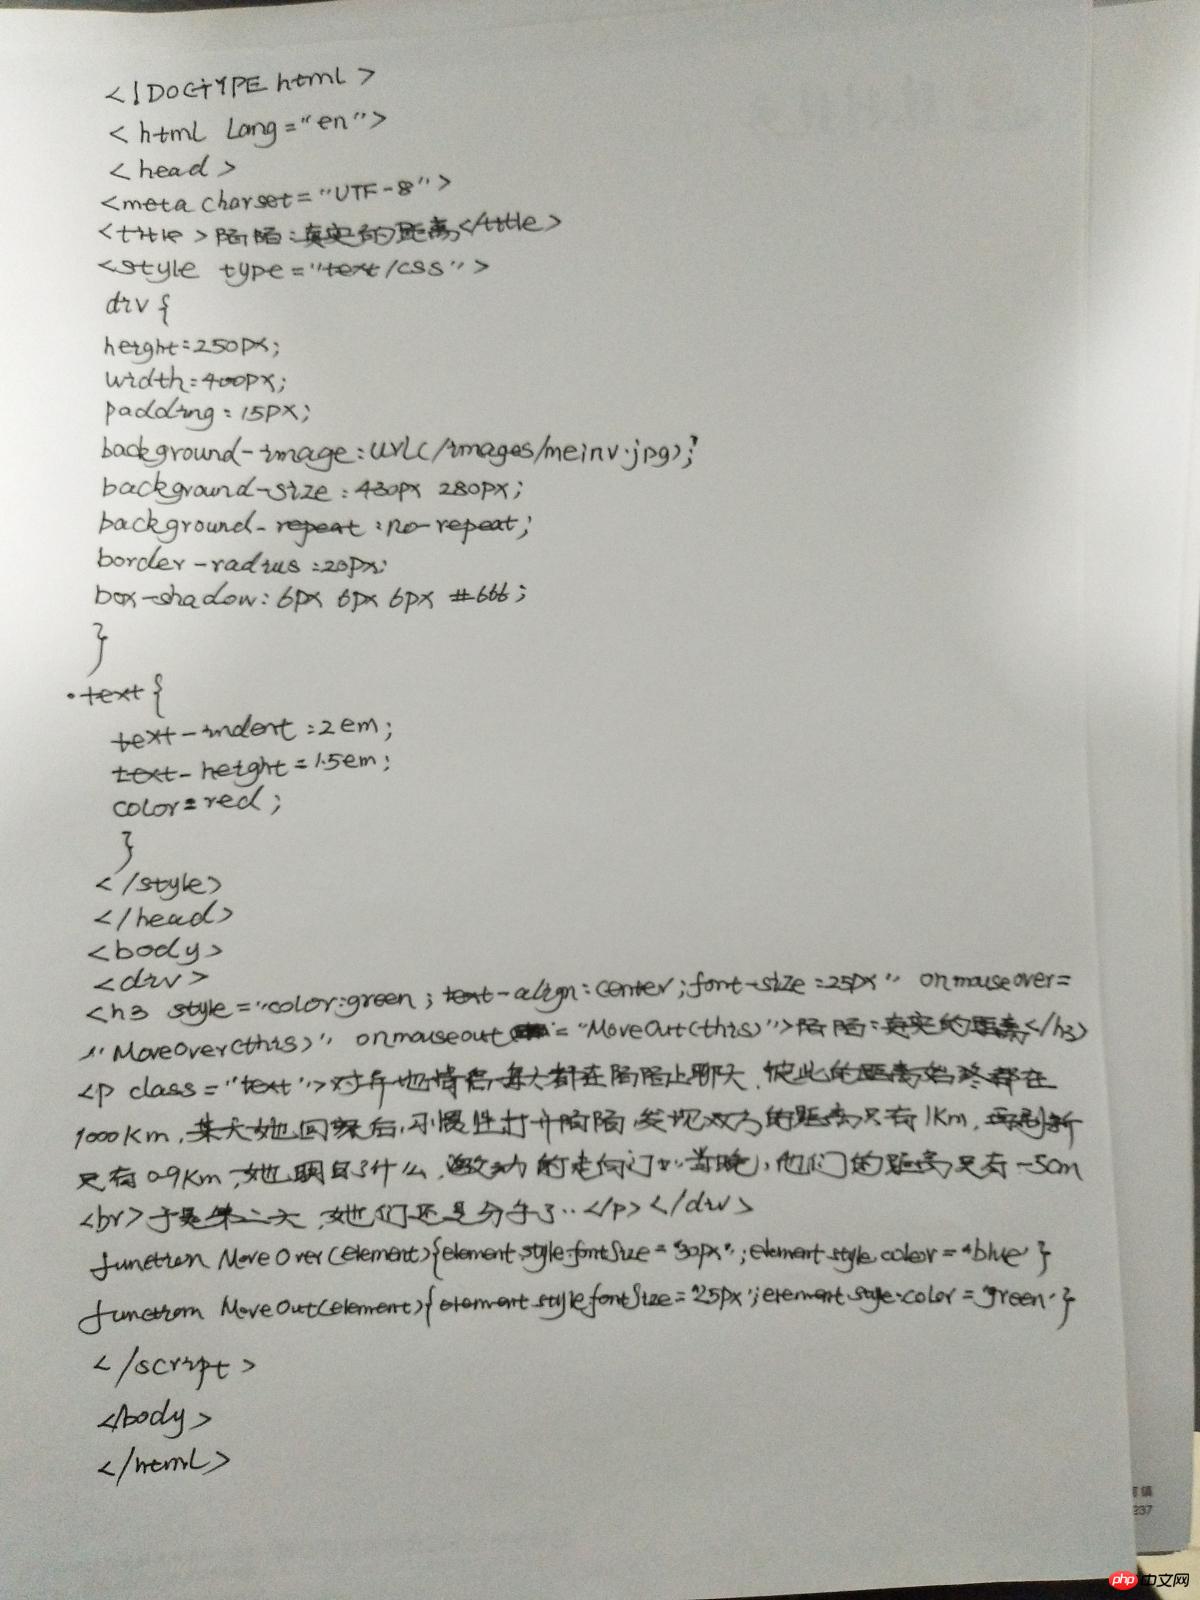 <!DOCTYPE html>
<html lang="en">
<head>
<meta charset="UTF-8">
<title>陌陌:真实的距离</title>
<style type="text/css">
div{
height:250px;
width:400px;
padding:15px;
background-image:url(/images/meinv.jpg);
background-size:430px 280px;
background-repeat:no-repeat;
border-radius:20px;
box-shadow:6px 6px 6px #666;
}
.text{
text-indent:2em;
text-height=1.5em;
color=red;
}
</style>
</head>
<body>
<div>
<h3 style="color:green;text-align:center;font-size:25px" onmouseover=
"MoveOver(this)" onmouseout="MoveOut(this)">陌陌:真实的距离</h3>
<p class="text">对异地情侣每天都在陌陌上聊天,彼此的距离始终都在
1000Km,某天她回家后,习惯性打开陌陌,发现双方的距离只有1Km,再刷新
只有0.9Km,她明白了什么,激动的走向门口..当晚,他们的距离只有-5cm
<br>于是第二天,她们还是分手了..</p></div>
function MoveOver(element){element.style.fontSize="30px";element.style.color="blue"}
function MoveOut(element){element.style.fontSize="25px";element.style.color="green"}
</script>
</body>
</html>
237
php中文网